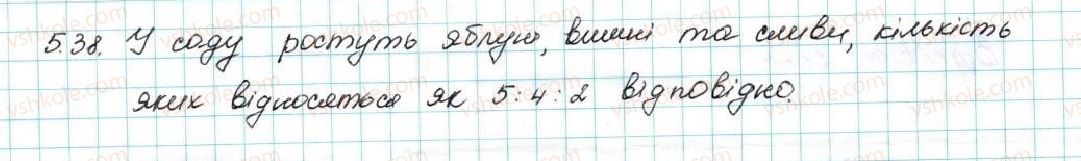 5.38. У саду ростуть яблуні, вишні та сливи, кількість
яких відносяться як 5 : 4 : 2 відповідно.